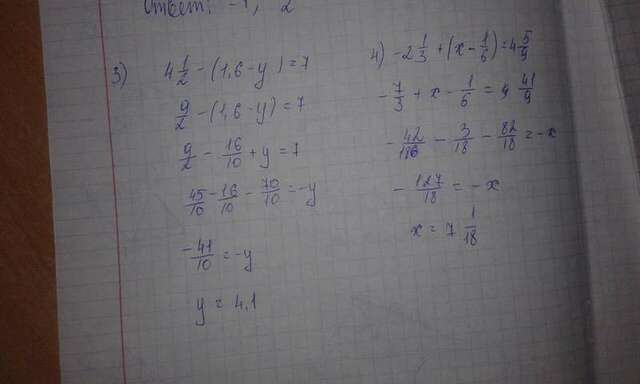 Ответ: -1, 2
3) 4 1/2 - (1,6 - y) = 7
9/2 - (1,6 - y) = 7
9/2 - 16/10 + y = 7
45/10 - 16/10 - 70/10 = -y
-41/10 = -y
y = 4,1
4) -2 1/3 + (x - 1/6) = 4 5/9
-7/3 + x - 1/6 = 41/9
-42/18 - 3/18 - 82/18 = -x
-127/18 = -x
x = 7 1/18